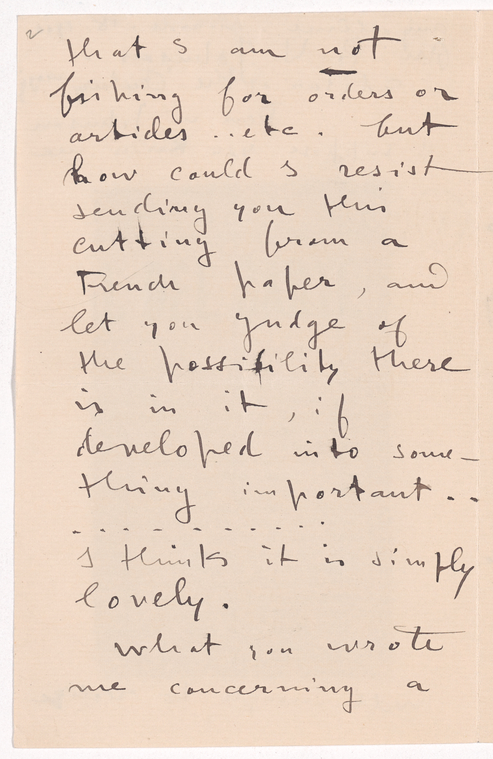 2
that I am not
fishing for orders or
articles .. etc . but
how could I resist
sending you this
cutting from a
French paper , and
let you yudge of
the possibility there
is in it , if
developed into some-
thing important ..
. . . . . . . . . . .
I thinks it is simply
lovely .
What you wrote
me concerning a